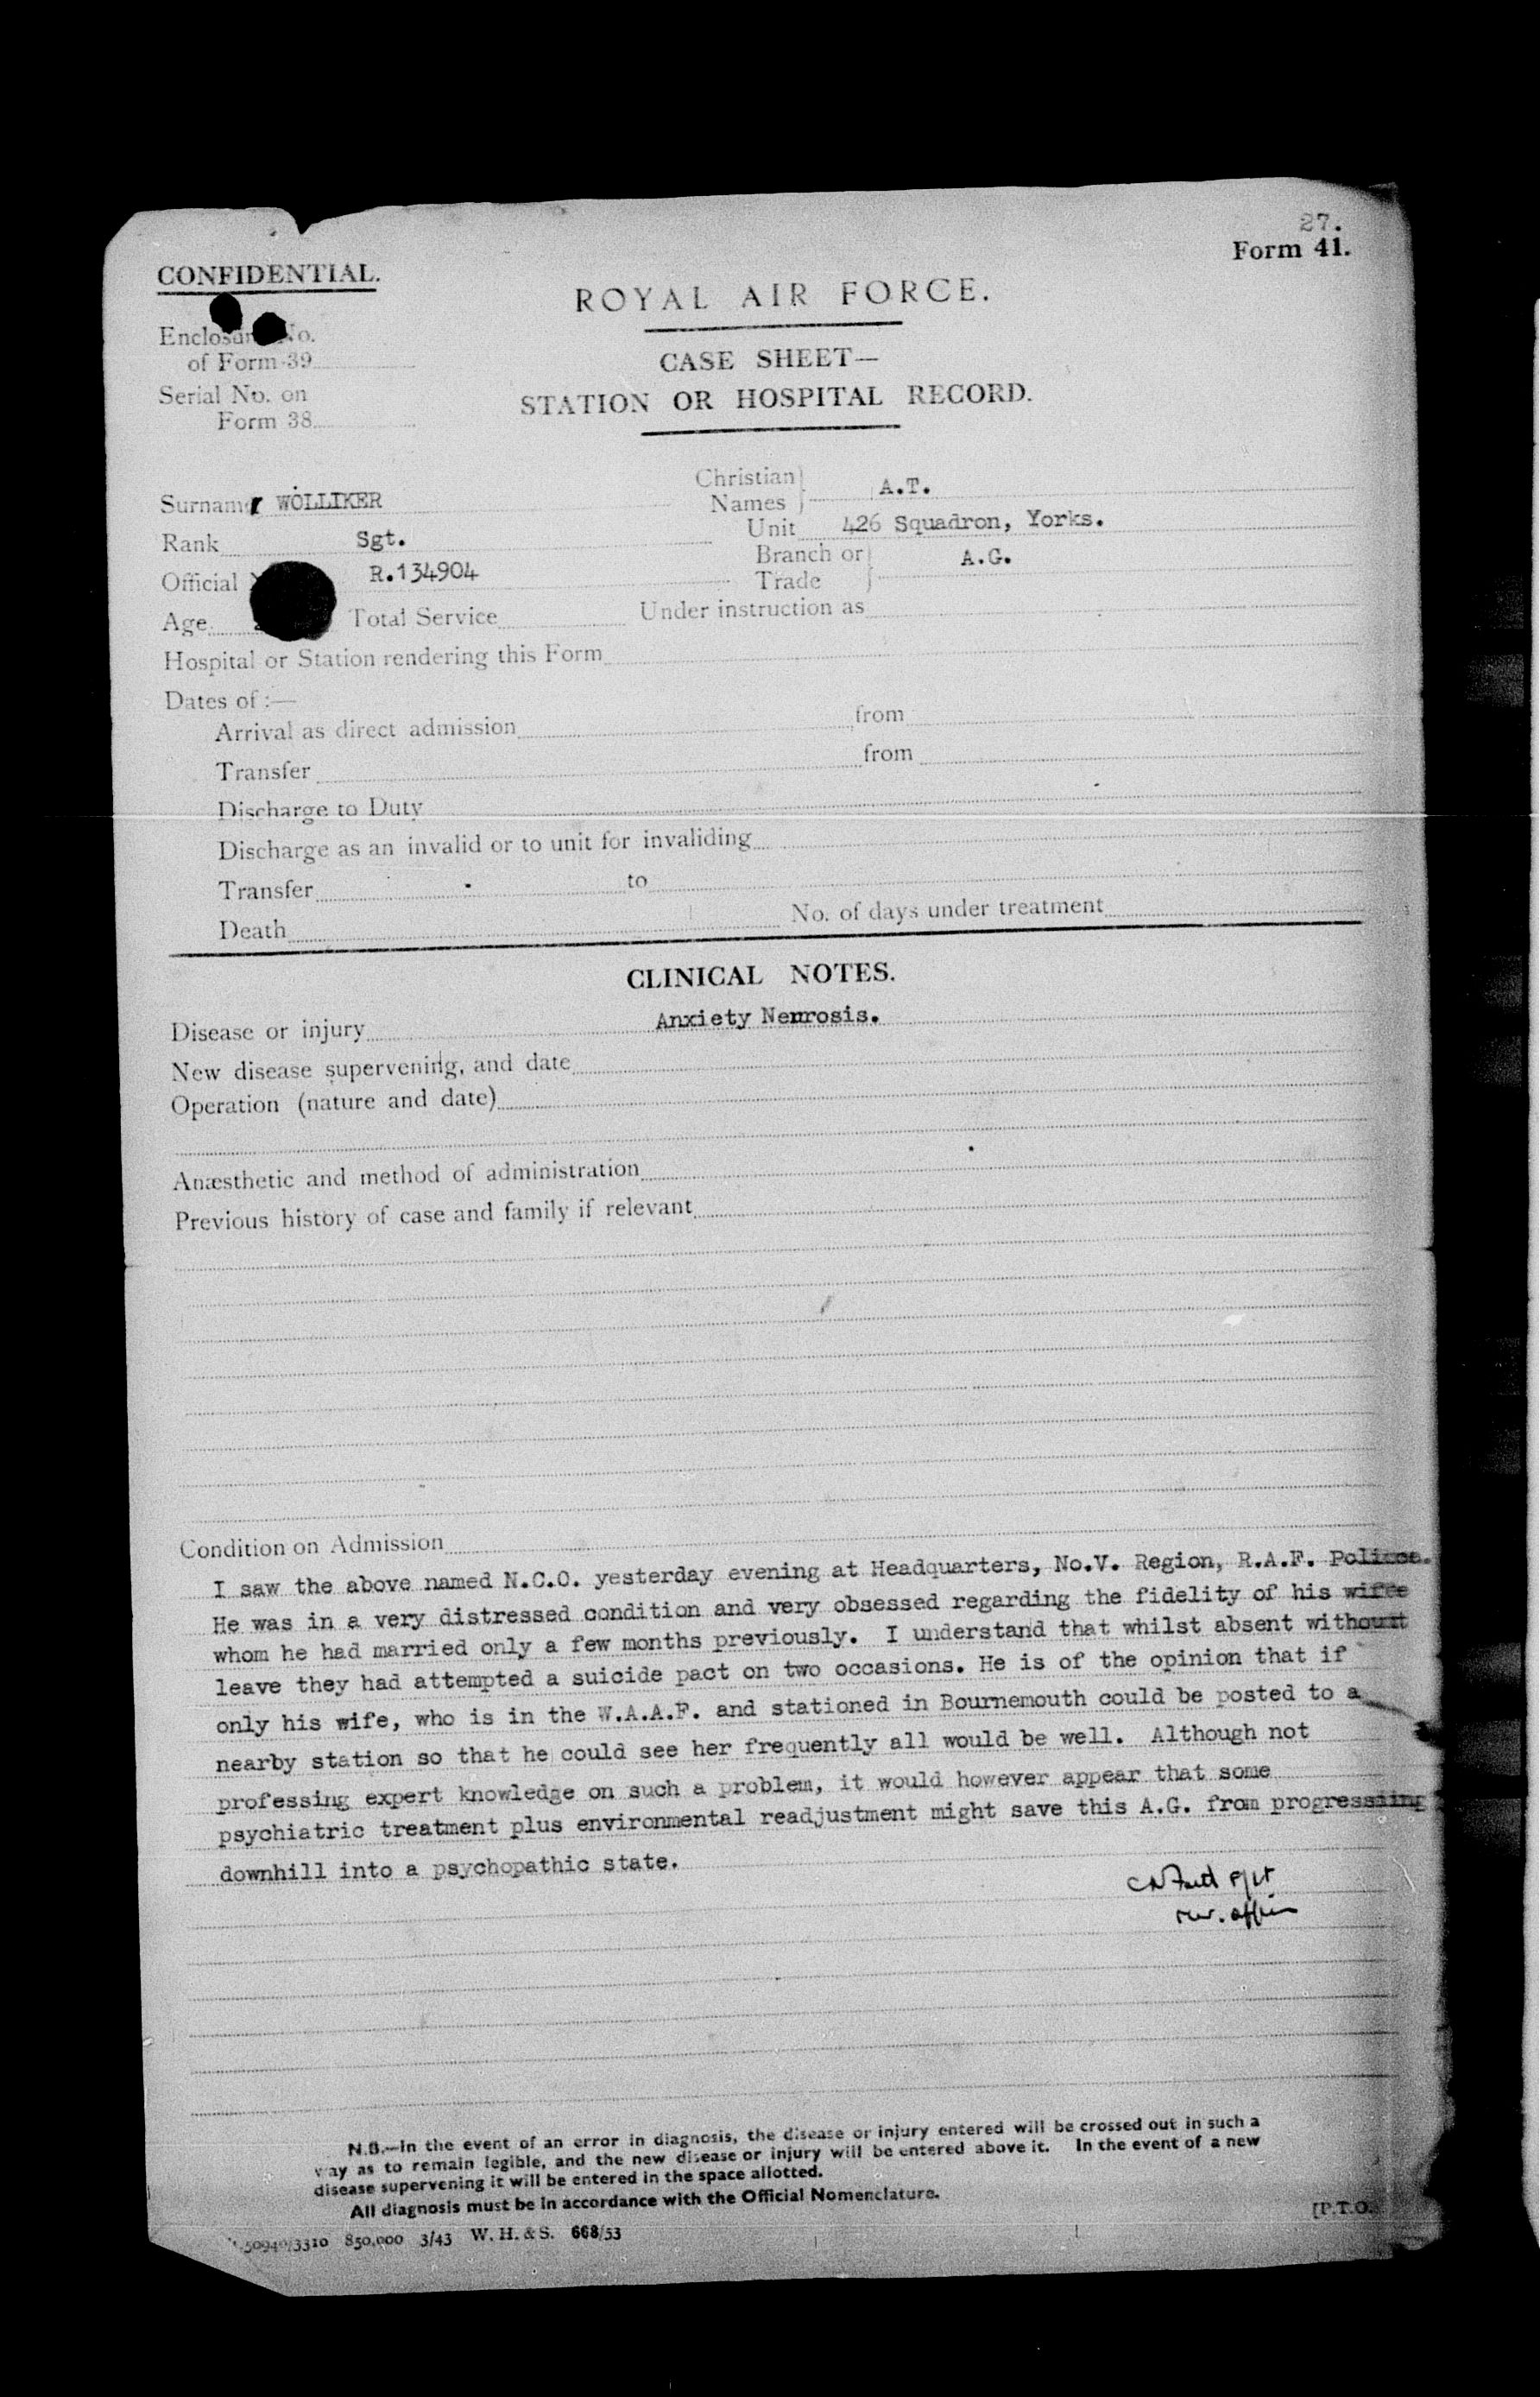 27.
Form 41.
CONFIDENTIAL.
ROYAL AIR FORCE.
Enclosure No.
of Form 39
CASE SHEET—
Serial No. on
STATION OR HOSPITAL RECORD.
Form 38
Surname WOLLIKER Christian Names A.T.
Rank Sgt. Unit 426 Squadron, Yorks.
Official R.134904 Branch or Trade A.G.
Age Total Service Under instruction as
Hospital or Station rendering this Form
Dates of :—
Arrival as direct admission from
Transfer from
Discharge to Duty
Discharge as an invalid or to unit for invaliding
Transfer to
Death No. of days under treatment
CLINICAL NOTES.
Disease or injury Anxiety Neurosis.
New disease supervening, and date
Operation (nature and date)
Anæsthetic and method of administration
Previous history of case and family if relevant
Condition on Admission
I saw the above named N.C.O. yesterday evening at Headquarters, No.V. Region, R.A.F. Police.
He was in a very distressed condition and very obsessed regarding the fidelity of his wife
whom he had married only a few months previously. I understand that whilst absent without
leave they had attempted a suicide pact on two occasions. He is of the opinion that if
only his wife, who is in the W.A.A.F. and stationed in Bournemouth could be posted to a
nearby station so that he could see her frequently all would be well. Although not
professing expert knowledge on such a problem, it would however appear that some
psychiatric treatment plus environmental readjustment might save this A.G. from progressing
downhill into a psychopathic state.
F/Lt
N.B.—In the event of an error in diagnosis, the disease or injury entered will be crossed out in such a
way as to remain legible, and the new disease or injury will be entered above it. In the event of a new
disease supervening it will be entered in the space allotted.
All diagnosis must be in accordance with the Official Nomenclature.
[P.T.O.
50940/3310 850,000 3/43 W. H. & S. 668/53